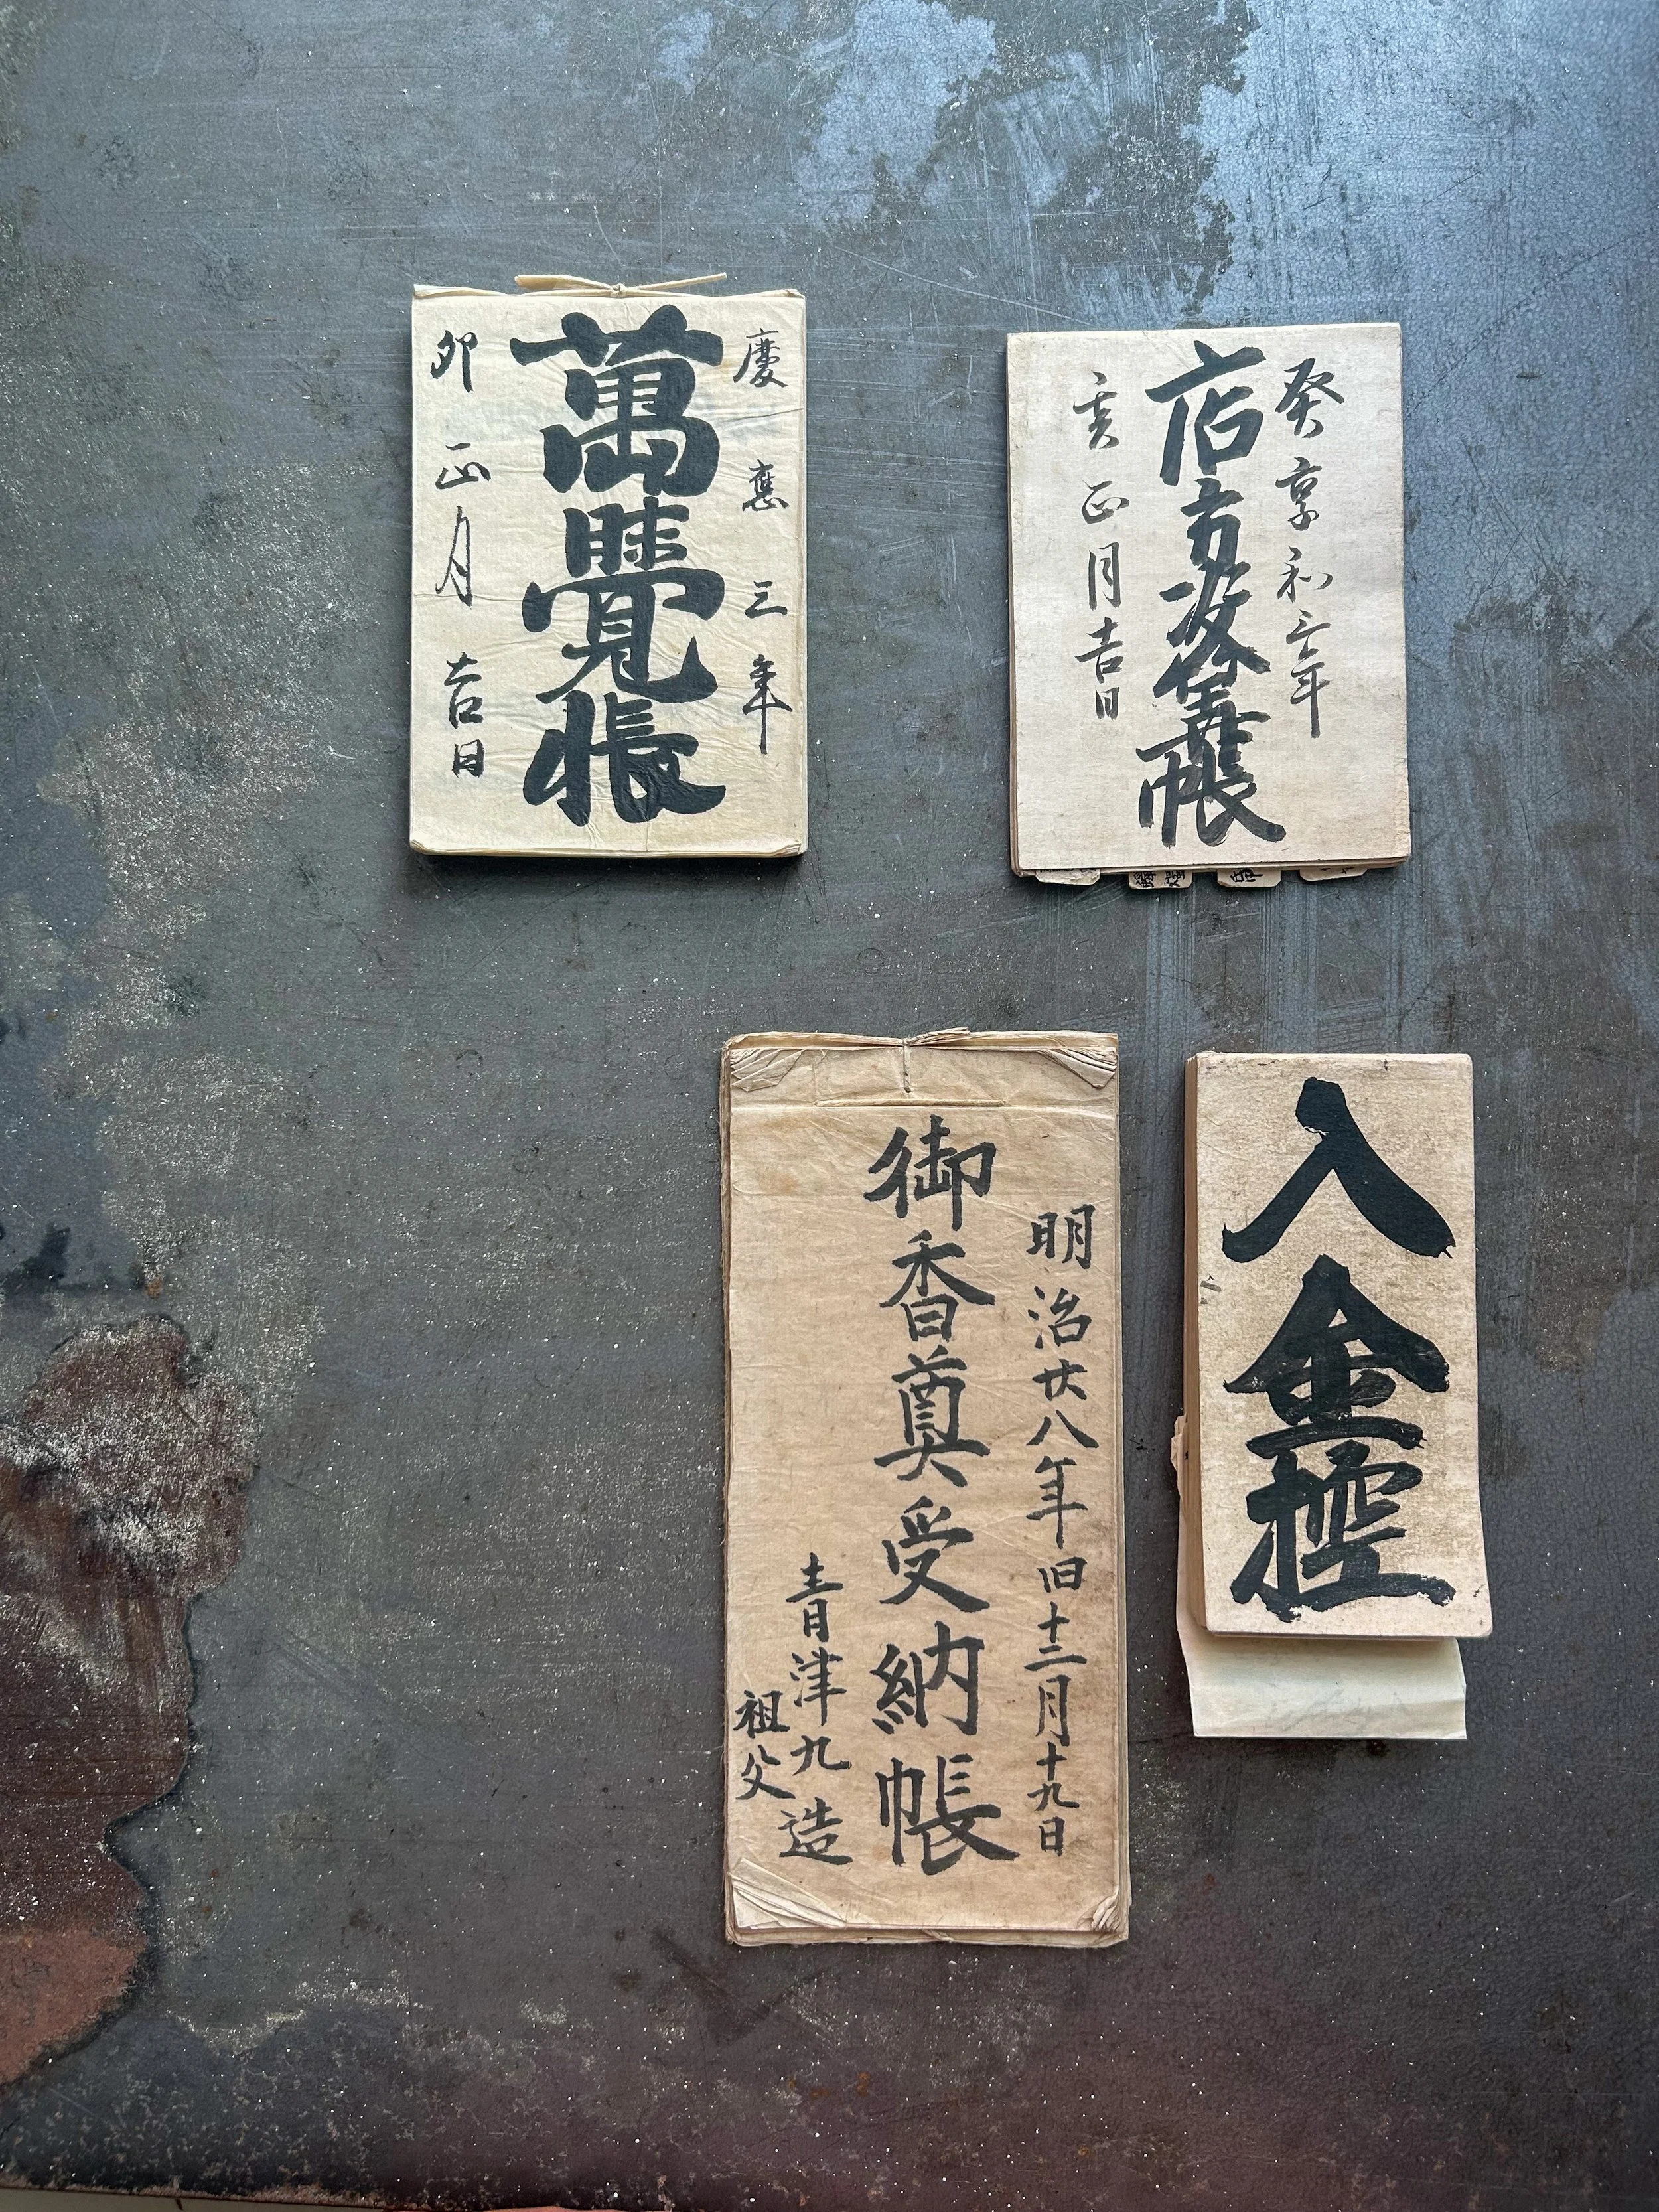 慶應三年
萬覺帳
卯正月吉日
癸享和三年
店方帳
亥正月吉日
入金控
明治廿八年旧十二月十九日
御香奠受納帳
青津九造
祖父